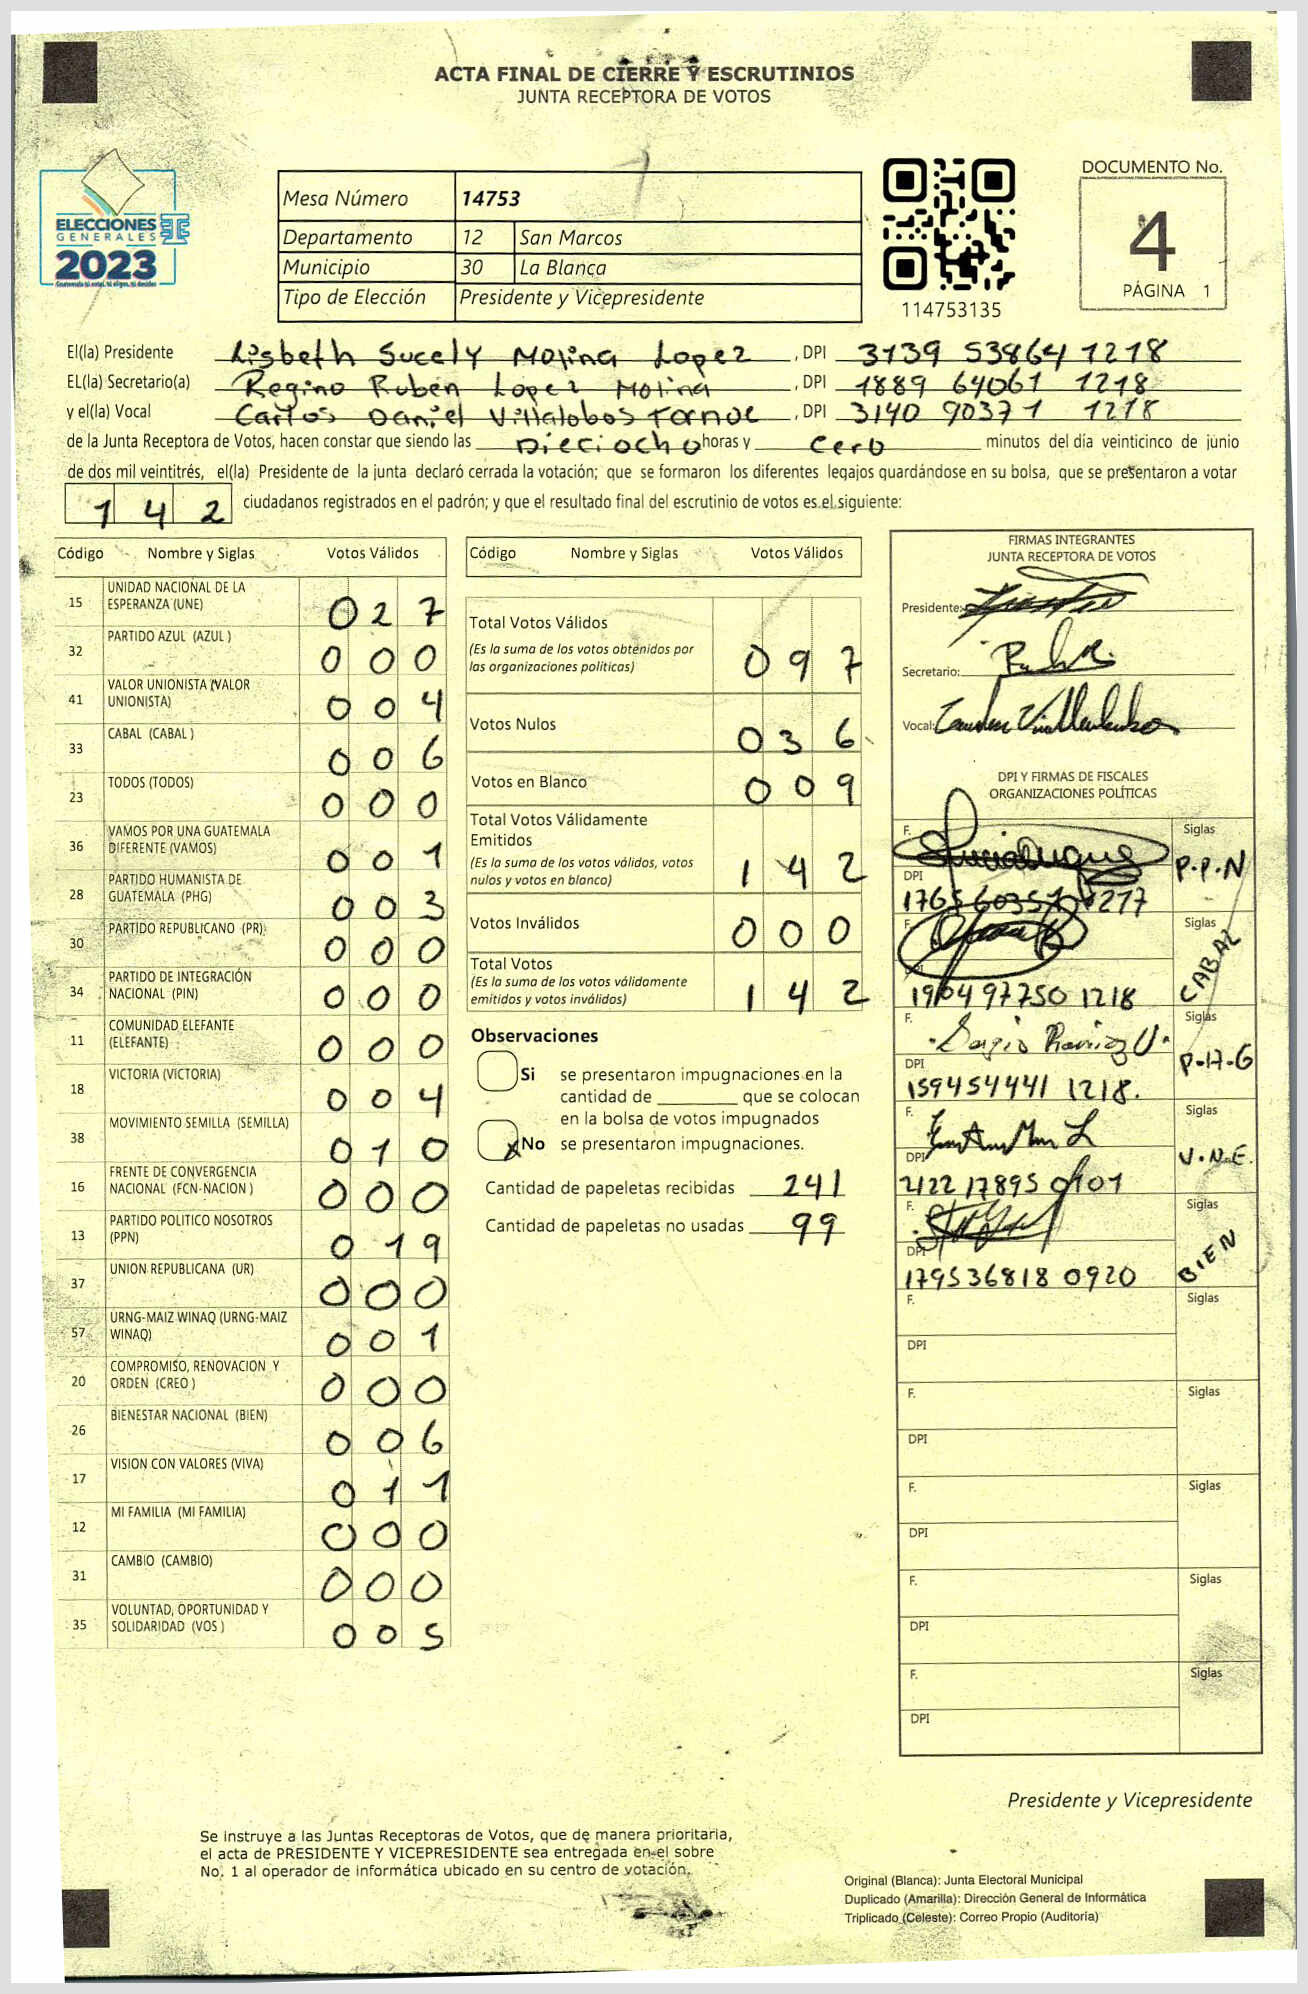 ACTA FINAL DE CIERRE Y ESCRUTINIOS
JUNTA RECEPTORA DE VOTOS
ELECCIONES
GENERALES
2023
Mesa Número 14753
Departamento 12 San Marcos
Municipio 30 La Blanca
Tipo de Elección Presidente y Vicepresidente
114753135
DOCUMENTO No.
4
PÁGINA 1
El(la) Presidente Lisbeth Sucely Molina Lopez, DPI 3139 53864 1218
EL(la) Secretario(a) Regino Ruben Lopez Molina, DPI 1889 64061 1218
y el(la) Vocal Carlos Daniel Villalobos, DPI 3140 90371 1218
de la Junta Receptora de Votos, hacen constar que siendo las Dieciocho horas y cero minutos del día veinticinco de junio
de dos mil veintitrés, el(la) Presidente de la junta declaró cerrada la votación; que se formaron los diferentes legajos quardándose en su bolsa, que se presentaron a votar
142 ciudadanos registrados en el padrón; y que el resultado final del escrutinio de votos es el siguiente:
Código Nombre y Siglas Votos Válidos
15 UNIDAD NACIONAL DE LA ESPERANZA (UNE) 027
32 PARTIDO AZUL (AZUL ) 000
41 VALOR UNIONISTA (VALOR UNIONISTA) 004
33 CABAL (CABAL ) 006
23 TODOS (TODOS) 000
36 VAMOS POR UNA GUATEMALA DIFERENTE (VAMOS) 001
28 PARTIDO HUMANISTA DE GUATEMALA (PHG) 003
30 PARTIDO REPUBLICANO (PR) 000
34 PARTIDO DE INTEGRACIÓN NACIONAL (PIN) 000
11 COMUNIDAD ELEFANTE (ELEFANTE) 000
18 VICTORIA (VICTORIA) 004
38 MOVIMIENTO SEMILLA (SEMILLA) 010
16 FRENTE DE CONVERGENCIA NACIONAL (FCN-NACION ) 000
13 PARTIDO POLITICO NOSOTROS (PPN) 019
37 UNION REPUBLICANA (UR) 000
57 URNG-MAIZ WINAQ (URNG-MAIZ WINAQ) 001
20 COMPROMISO, RENOVACION Y ORDEN (CREO ) 000
26 BIENESTAR NACIONAL (BIEN) 006
17 VISION CON VALORES (VIVA) 011
12 MI FAMILIA (MI FAMILIA) 000
31 CAMBIO (CAMBIO) 000
35 VOLUNTAD, OPORTUNIDAD Y SOLIDARIDAD (VOS ) 005
Código Nombre y Siglas Votos Válidos
Total Votos Válidos 097
(Es la suma de los votos obtenidos por
las organizaciones políticas)
Votos Nulos 036
Votos en Blanco 009
Total Votos Válidamente
Emitidos 142
(Es la suma de los votos válidos, votos
nulos y votos en blanco)
Votos Inválidos 000
Total Votos 142
(Es la suma de los votos válidamente
emitidos y votos inválidos)
Observaciones
Si se presentaron impugnaciones en la
cantidad de ________ que se colocan
en la bolsa de votos impugnados
x No se presentaron impugnaciones.
Cantidad de papeletas recibidas 241
Cantidad de papeletas no usadas 99
FIRMAS INTEGRANTES
JUNTA RECEPTORA DE VOTOS
Presidente:
Secretario:
Vocal:
DPI Y FIRMAS DE FISCALES
ORGANIZACIONES POLÍTICAS
F. Siglas P.P.N
DPI
F. Siglas CABAL
DPI 1904 97750 1218
F. Sergio Siglas
DPI 159454441 1218.
F. Siglas U.N.E.
DPI 2122 17895 0101
F. Siglas BIEN
DPI 179536818 0920
F. Siglas
DPI
F. Siglas
DPI
F. Siglas
DPI
F. Siglas
DPI
F. Siglas
DPI
Presidente y Vicepresidente
Se instruye a las Juntas Receptoras de Votos, que de manera prioritaria,
el acta de PRESIDENTE Y VICEPRESIDENTE sea entregada en el sobre
No. 1 al operador de informática ubicado en su centro de votación.
Original (Blanca): Junta Electoral Municipal
Duplicado (Amarilla): Dirección General de Informática
Triplicado (Celeste): Correo Propio (Auditoría)